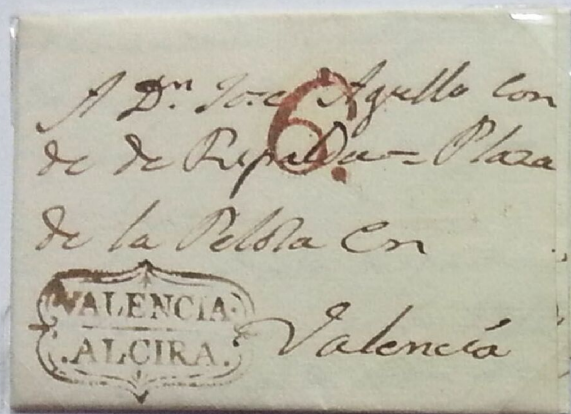 A Dn. Jose Agullo Con
de de Ripalda = Plaza
de la Pelota en
Valencia
6.
VALENCIA.
.ALCIRA.